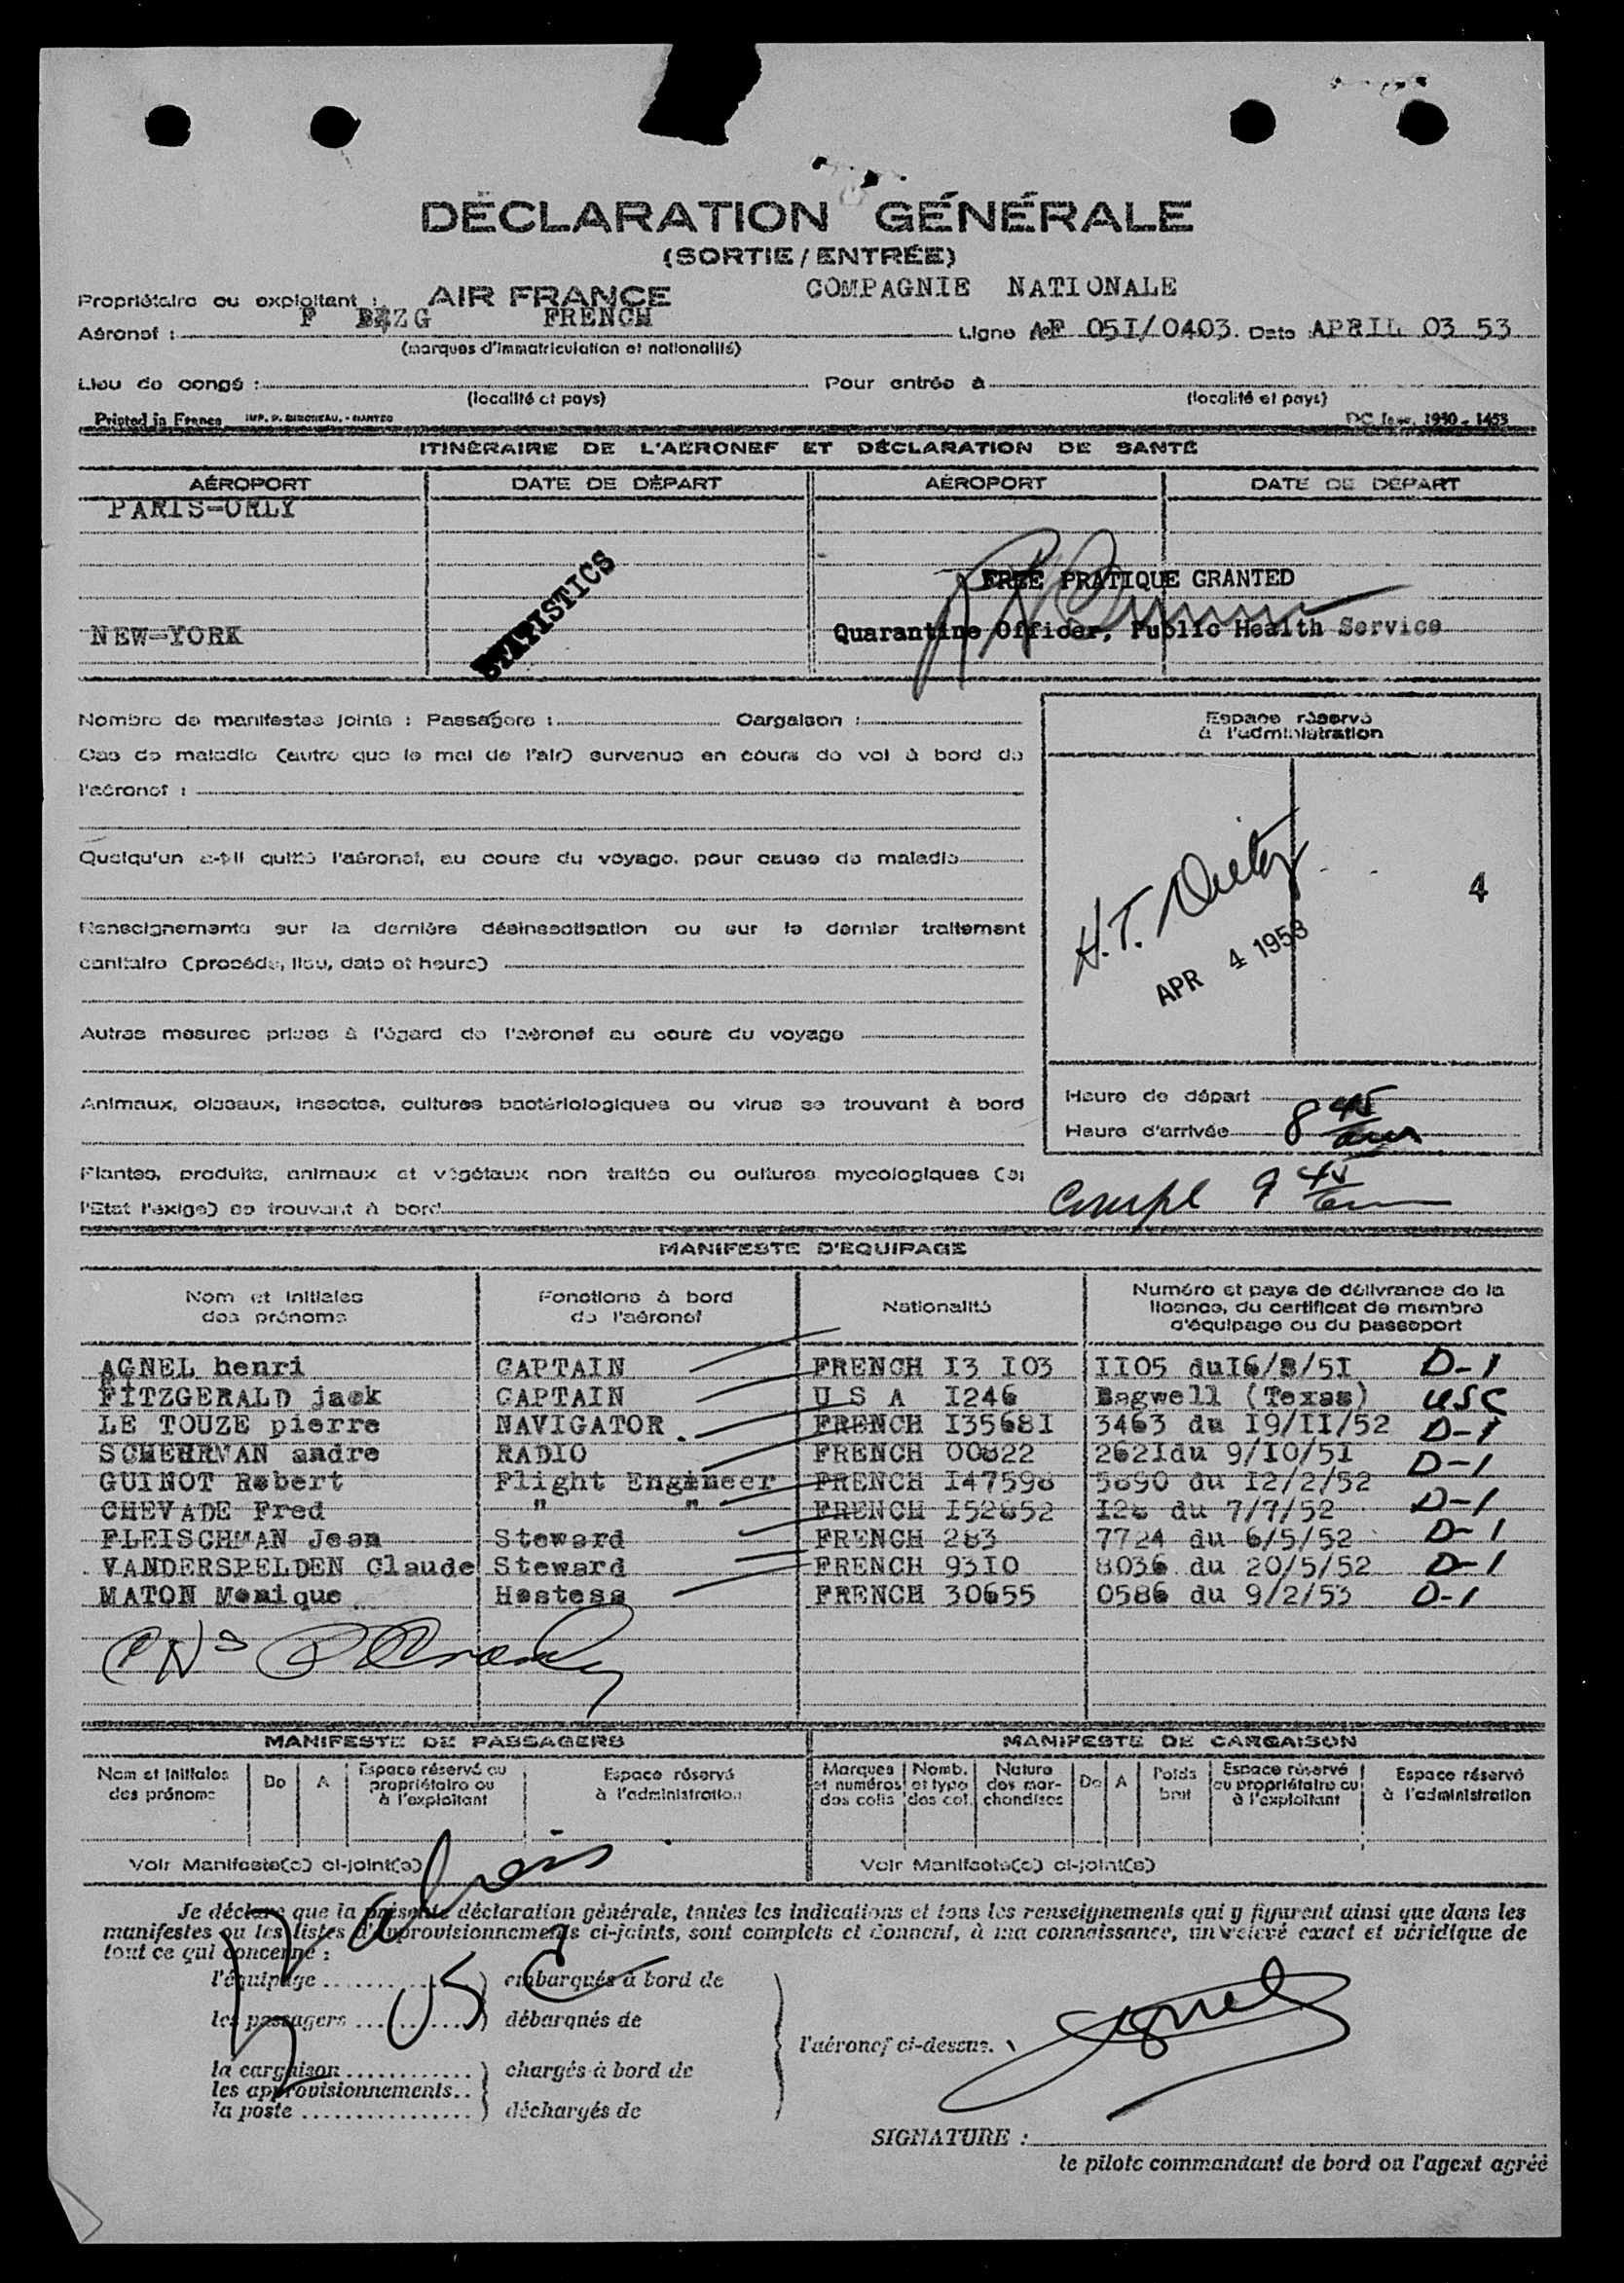 DÉCLARATION GÉNÉRALE
(SORTIE/ENTRÉE)
Propriétaire ou exploitant : AIR FRANCE COMPAGNIE NATIONALE
Aéronef : F FRENCH Ligne N° AF 05I/0403. Date APRIL 03 53
(marques d'immatriculation et nationalité)
Lieu de congé : Pour entrée à
(localité et pays) (localité et pays)
Printed in France
ITINÉRAIRE DE L'AÉRONEF ET DÉCLARATION DE SANTÉ
AÉROPORT DATE DE DÉPART AÉROPORT DATE DE DÉPART
PARIS-ORLY
STATISTICS
FREE PRATIQUE GRANTED
NEW-YORK
Quarantine Officer, Public Health Service
Nombre de manifestes joints : Passagers : Cargaison :
Espace réservé
à l'administration
Cas de maladie (autre que le mal de l'air) survenus en cours de vol à bord de
l'aéronef :
Quelqu'un a-t-il quitté l'aéronef, au cours du voyage, pour cause de maladie
4
H.T.
APR 4 1953
Renseignements sur la dernière désinsectisation ou sur le dernier traitement
sanitaire (procédé, lieu, date et heure)
Autres mesures prises à l'égard de l'aéronef au cours du voyage
Animaux, oiseaux, insectes, cultures bactériologiques ou virus se trouvant à bord
Heure de départ
Heure d'arrivée 8 45 am
Plantes, produits, animaux et végétaux non traités ou cultures mycologiques (si
l'Etat l'exige) se trouvant à bord
Compl 9 45 am
MANIFESTE D'ÉQUIPAGE
Nom et initiales des prénoms
Fonctions à bord de l'aéronef
Nationalité
Numéro et pays de délivrance de la licence, du certificat de membre d'équipage ou du passeport
AGNEL henri CAPTAIN FRENCH I3 I03 II05 duI6/8/5I D-1
FITZGERALD jack CAPTAIN U S A I246 Bagwell (Texas) USC
LE TOUZE pierre NAVIGATOR. FRENCH I3568I 3463 du I9/II/52 D-1
SCHEHRMAN andre RADIO FRENCH 00822 262Idu 9/IO/5I
GUINOT Robert Flight Engineer FRENCH I47598 5890 du I2/2/52 D-1
CHEVADE Fred " " FRENCH I52852 du 7/7/52 D-1
FLEISCHMAN Jean Steward FRENCH 283 7724 du 6/5/52 D-1
VANDERSPELDEN Claude Steward FRENCH 93IO 8036 du 20/5/52 D-1
MATON Monique Hostess FRENCH 30655 0586 du 9/2/53 D-1
MANIFESTE DE PASSAGERS MANIFESTE DE CARGAISON
Nom et initiales des prénoms
De
A
Espace réservé au propriétaire ou à l'exploitant
Espace réservé à l'administration
Marques et numéros des colis
Nomb. et type des col.
Nature des marchandises
De
A
Poids brut
Espace réservé au propriétaire ou à l'exploitant
Espace réservé à l'administration
Voir Manifeste(s) ci-joint(s) Voir Manifeste(s) ci-joint(s)
Je déclare que la présente déclaration générale, toutes les indications et tous les renseignements qui y figurent ainsi que dans les
manifestes ou les listes d'approvisionnements ci-joints, sont complets et donnent, à ma connaissance, un relevé exact et véridique de
tout ce qui concerne :
l'équipage embarqués à bord de
les passagers débarqués de
l'aéronef ci-dessus.
la cargaison chargés à bord de
les approvisionnements
la poste déchargés de
SIGNATURE :
le pilote commandant de bord ou l'agent agréé